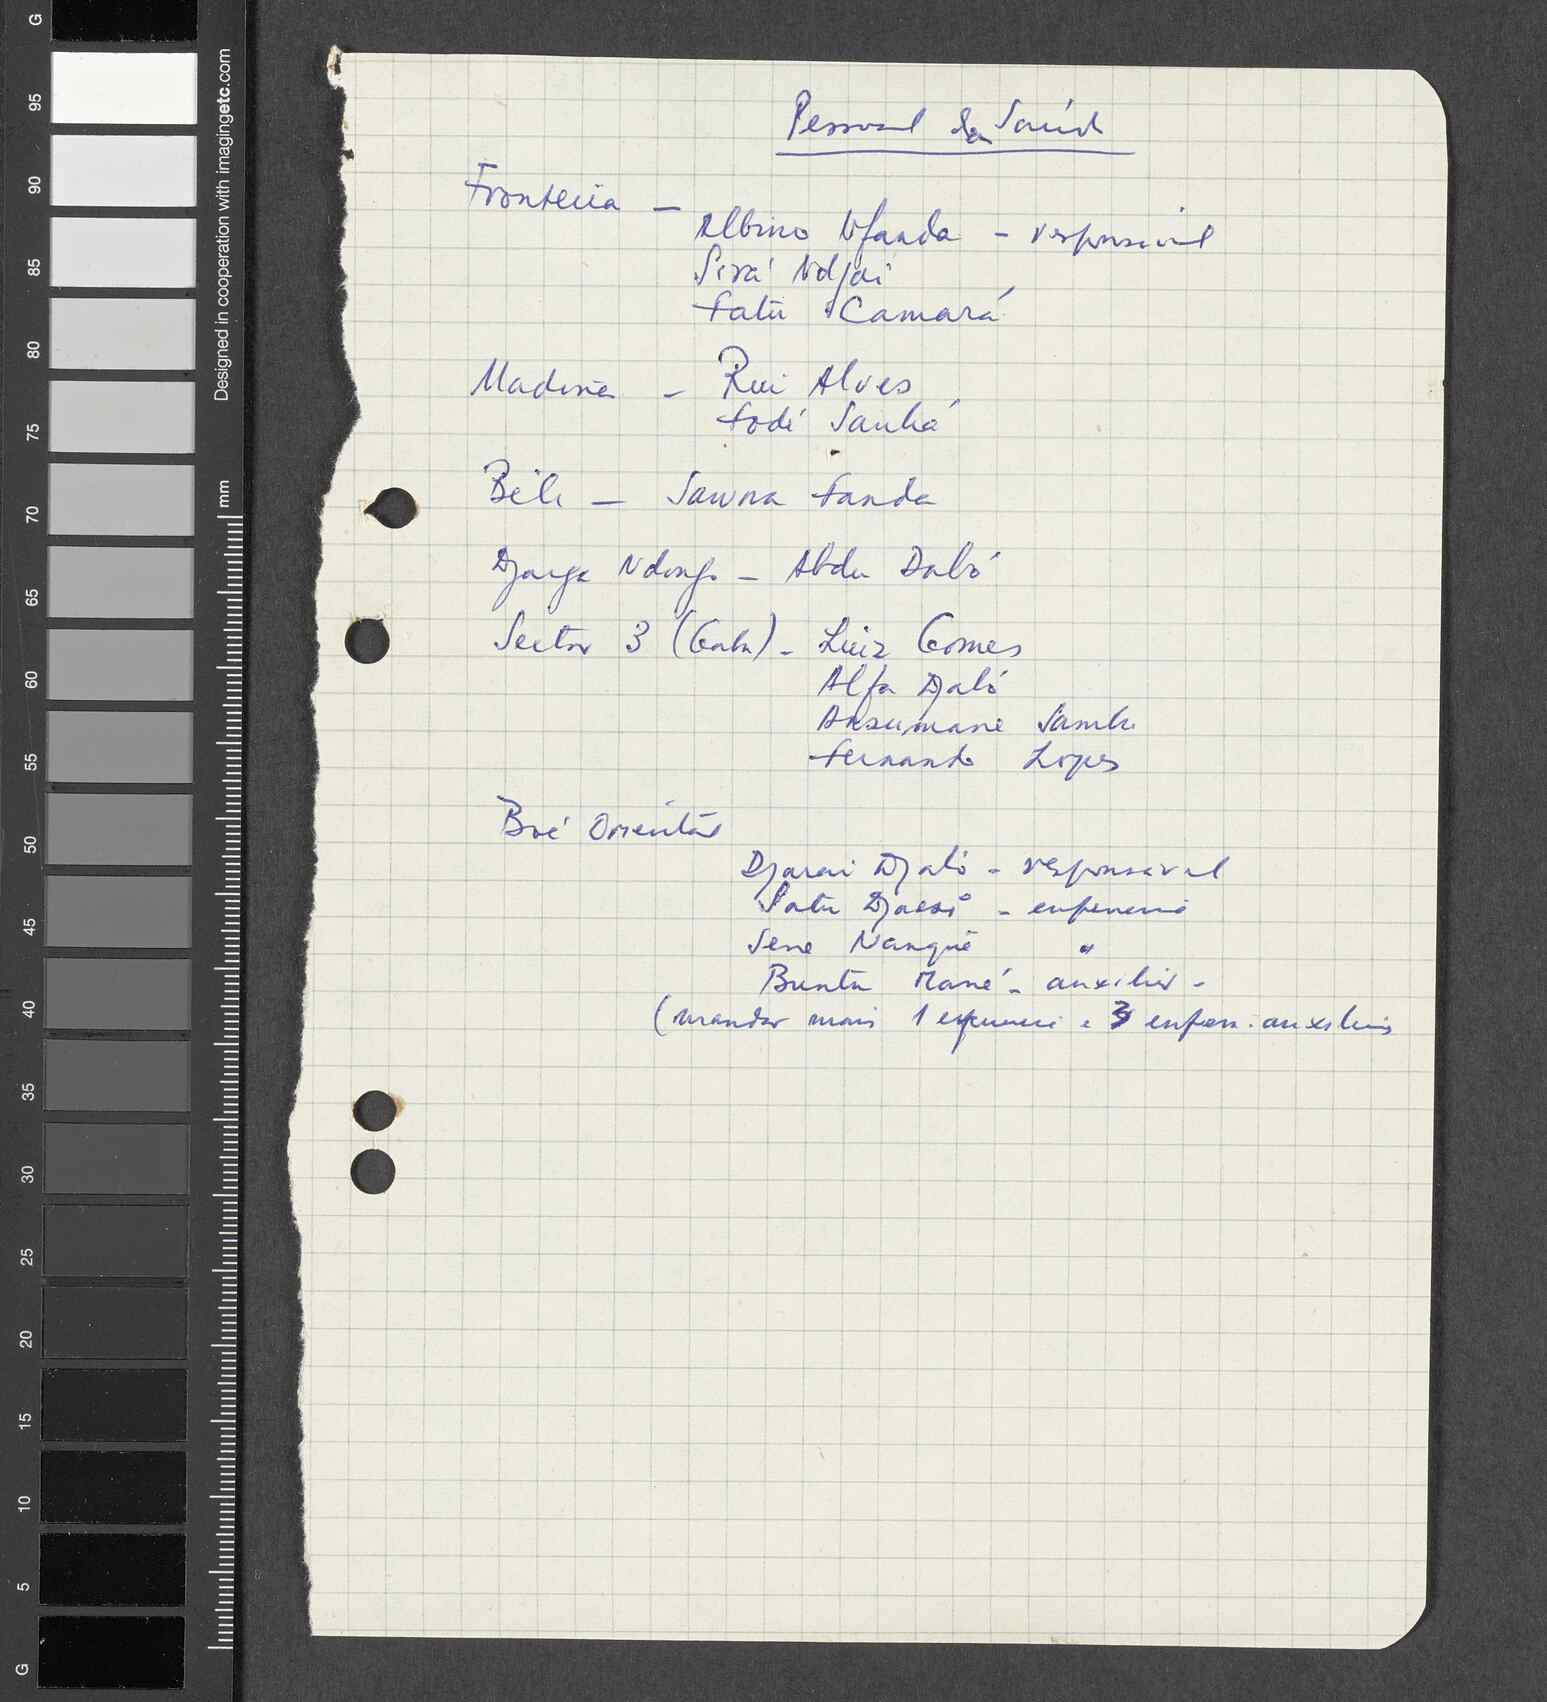 Pessoal da Saúde
Fronteira —
Albino Nfanda - responsável
Sirá Ndjai
Fatu Camará
Madina - Rui Alves
Fodé Sanhá
Béli — Sawna Fanda
Djanga Ndongo - Abdu Dabó
Sector 3 (Gabu) - Luiz Gomes
Alfa Djaló
Ansumane Sambu
Fernando Lopes
Boé Oriental
Djarai Djaló - responsável
Satu Djassi - enfermeiro
Sene Nanqui "
Buntu Mané - auxiliar -
(mandar mais 1 enfermeiro e 3 enferm. auxiliares
Designed in cooperation with imagingetc.com
mm
G
95
90
85
80
75
70
65
60
55
50
45
40
35
30
25
20
15
10
5
G